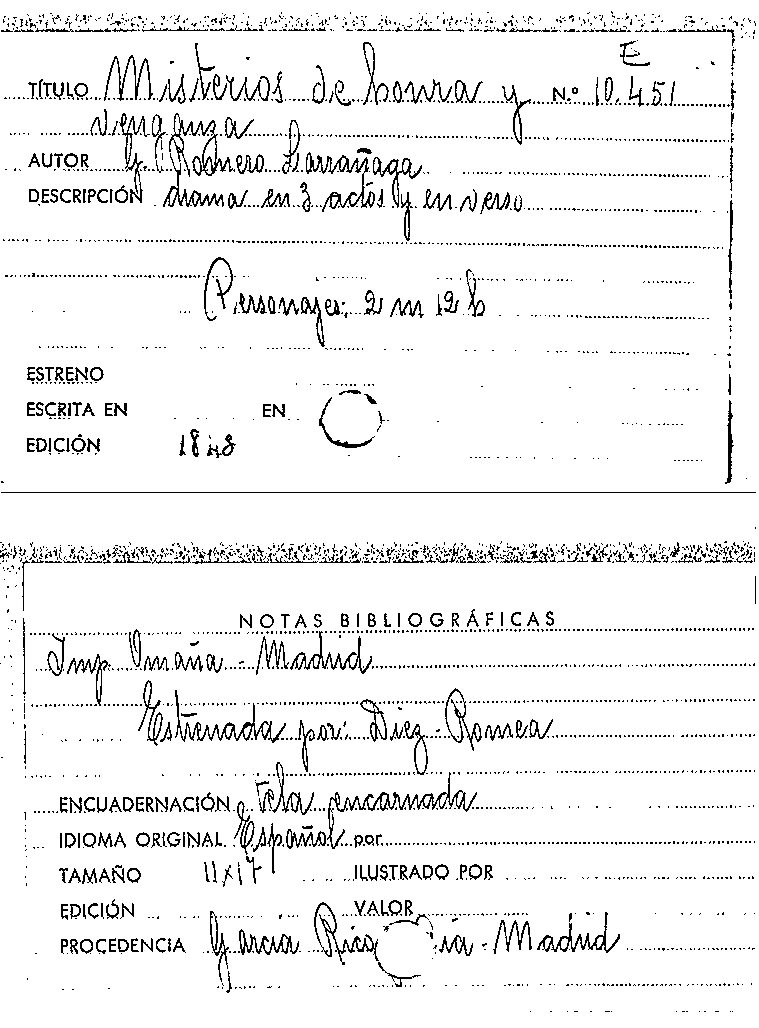 E
TÍTULO Misterios de honra y N.º 10.451
venganza
AUTOR G. Romero Larrañaga
DESCRIPCIÓN drama en 3 actos y en verso
Personajes: 2 m 12 h
ESTRENO
ESCRITA EN EN
EDICIÓN 1848
NOTAS BIBLIOGRÁFICAS
Imp Omaña - Madrid
Estrenada por: Diez - Romea
ENCUADERNACIÓN tela encarnada
IDIOMA ORIGINAL Español por
TAMAÑO 11x17 ILUSTRADO POR
EDICIÓN VALOR
PROCEDENCIA García Rico - Madrid